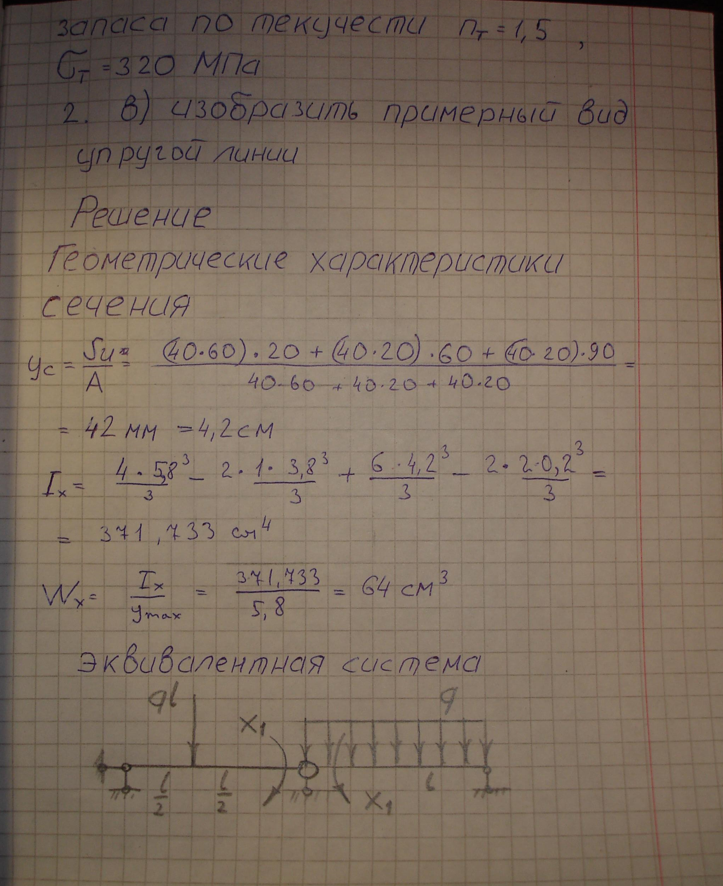 запаса по текучести nт = 1,5 ,
σт = 320 МПа
2. в) изобразить примерный вид
упругой линии
Решение
Геометрические характеристики
сечения
yc = Sи/A = ((40·60)·20 + (40·20)·60 + (40·20)·90)/(40·60 + 40·20 + 40·20) =
= 42 мм = 4,2 см
Ix = 4·5,8³/3 − 2·1·3,8³/3 + 6·4,2³/3 − 2·2·0,2³/3 =
= 371,733 см⁴
Wx = Ix/ymax = 371,733/5,8 = 64 см³
Эквивалентная система
ql q
X1
l/2 l/2 l
X1